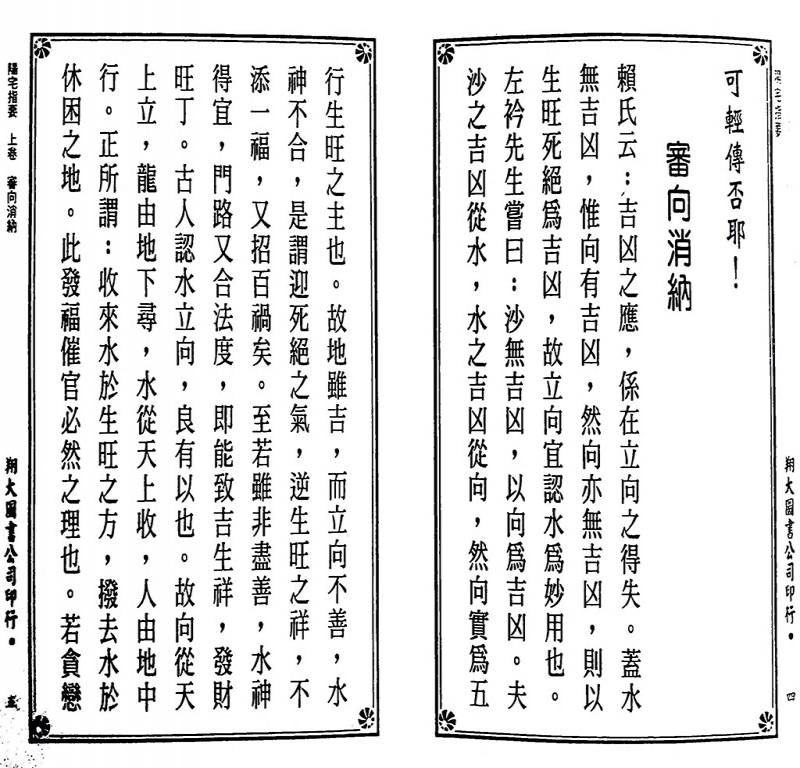 可輕傳否耶！
審向消納
賴氏云：吉凶之應，係在立向之得失。蓋水
無吉凶，惟向有吉凶，然向亦無吉凶，則以
生旺死絕爲吉凶，故立向宜認水爲妙用也。
左衿先生嘗曰：沙無吉凶，以向爲吉凶。夫
沙之吉凶從水，水之吉凶從向，然向實爲五
翔大圖書公司印行。 四
行生旺之主也。故地雖吉，而立向不善，水
神不合，是謂迎死絕之氣，逆生旺之祥，不
添一福，又招百禍矣。至若雖非盡善，水神
得宜，門路又合法度，即能致吉生祥，發財
旺丁。古人認水立向，良有以也。故向從天
上立，龍由地下尋，水從天上收，人由地中
行。正所謂：收來水於生旺之方，撥去水於
休困之地。此發福催官必然之理也。若貪戀
陽宅指要 上卷 審向消納
翔大圖書公司印行。 五